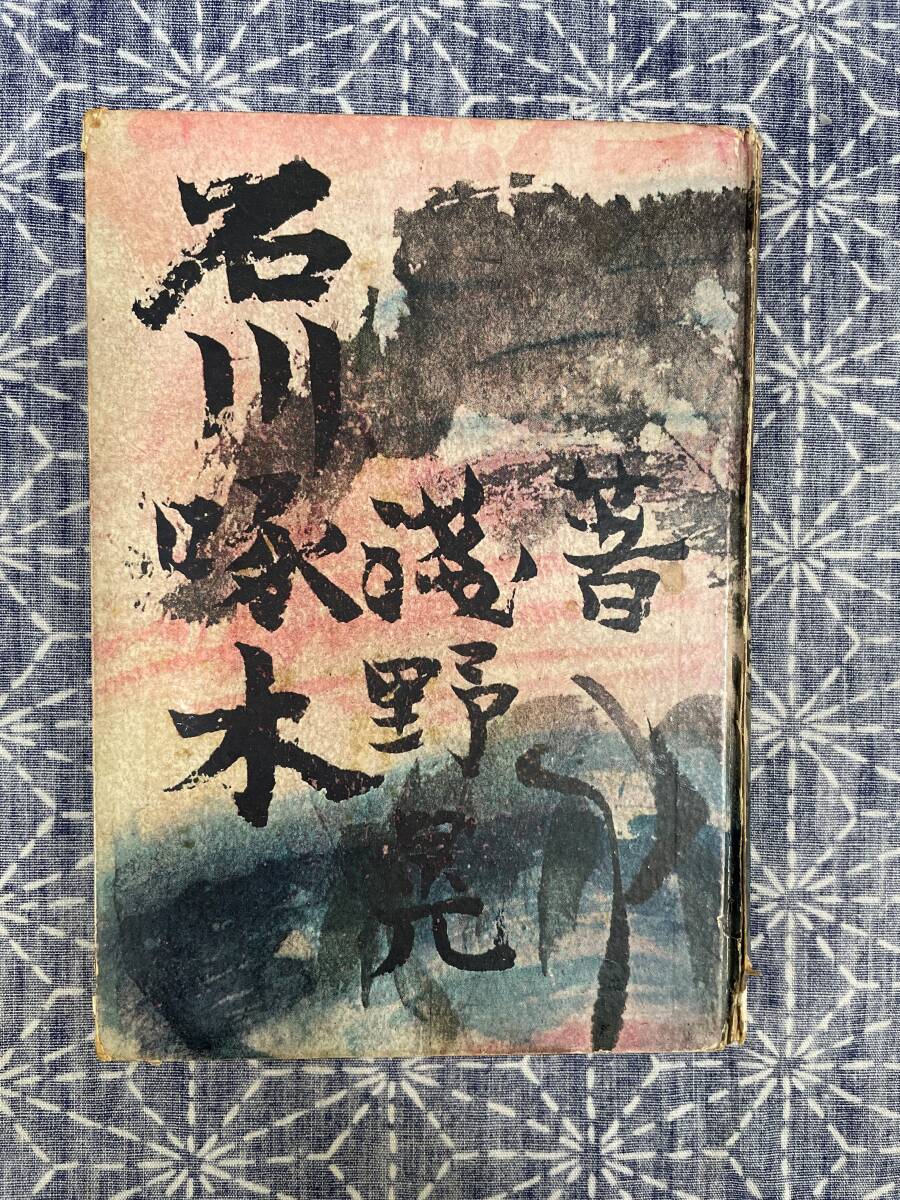 石川啄木
淺野晃
著